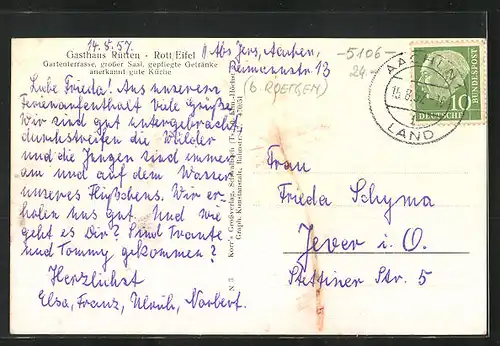 14.5.57.
Gasthaus Rütten · Rott/Eifel
Gartenterrasse, großer Saal, gepflegte Getränke
anerkannt gute Küche
Liebe Frieda! Aus unserem
Ferienaufenthalt viele Grüße.
Wir sind gut untergebracht,
durchstreifen die Wälder
und die Jungen sind immer
am und auf dem Wasser
unseres Flüßchens. Wir er-
holen uns gut. Und wie
geht es Dir? Sind Traute
und Tommy gekommen?
Herzlichst
Elsa, Franz, Ulrich, Norbert.
Abs. Jers, Aachen,
13
(b. ROETGEN)
-5106-
24.-
N 3
Korr's Großverlag,
AACHEN
LAND
10
DEUTSCHE BUNDESPOST
Frau
Frieda Schyma
Jever i. O.
Stettiner Str. 5